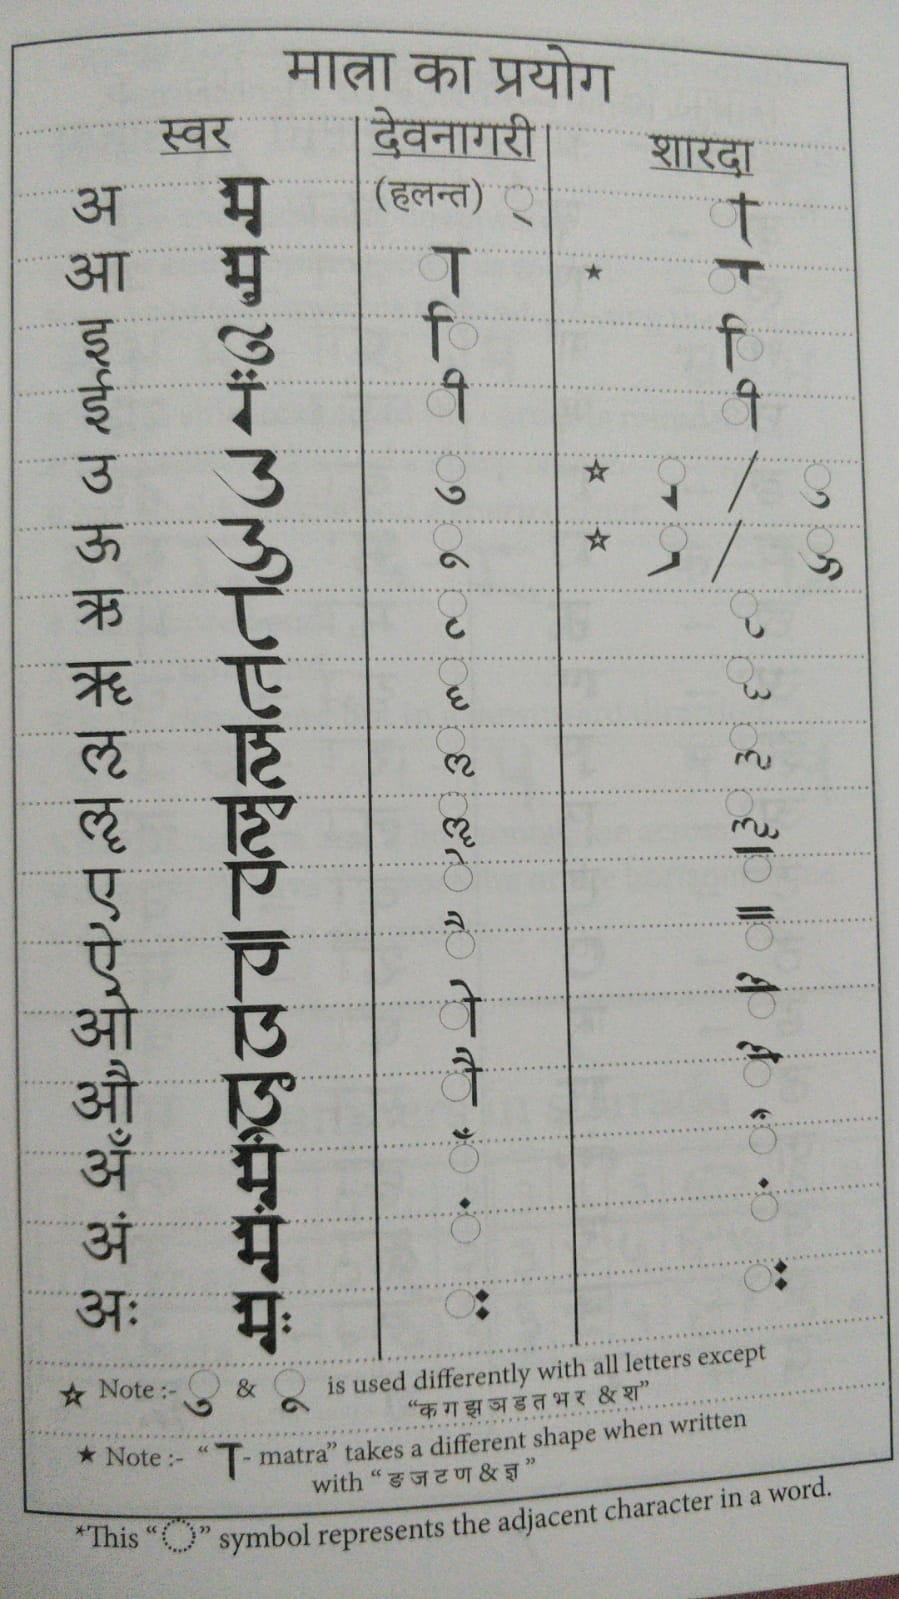 मात्रा का प्रयोग
स्वर देवनागरी शारदा
अ 𑆃 (हलन्त) ◌्
आ 𑆄 ◌ा ★
इ 𑆅 ◌ि
ई 𑆆 ◌ी
उ 𑆇 ◌ु ☆ /
ऊ 𑆈 ◌ू ☆ /
ऋ 𑆉 ◌ृ
ॠ 𑆊 ◌ॄ
ऌ 𑆋 ◌ॢ
ॡ 𑆌 ◌ॣ
ए 𑆍 ◌े
ऐ 𑆎 ◌ै
ओ 𑆏 ◌ो
औ 𑆐 ◌ौ
अँ 𑆃𑆀 ◌ँ
अं 𑆃𑆁 ◌ं
अः 𑆃𑆂 ◌ः
☆ Note :- ◌ु & ◌ू is used differently with all letters except
“क ग झ ञ ड त भ र & श”
★ Note :- “ ा- matra” takes a different shape when written
with “ ङ ज ट ण & ज्ञ ”
*This “◌” symbol represents the adjacent character in a word.